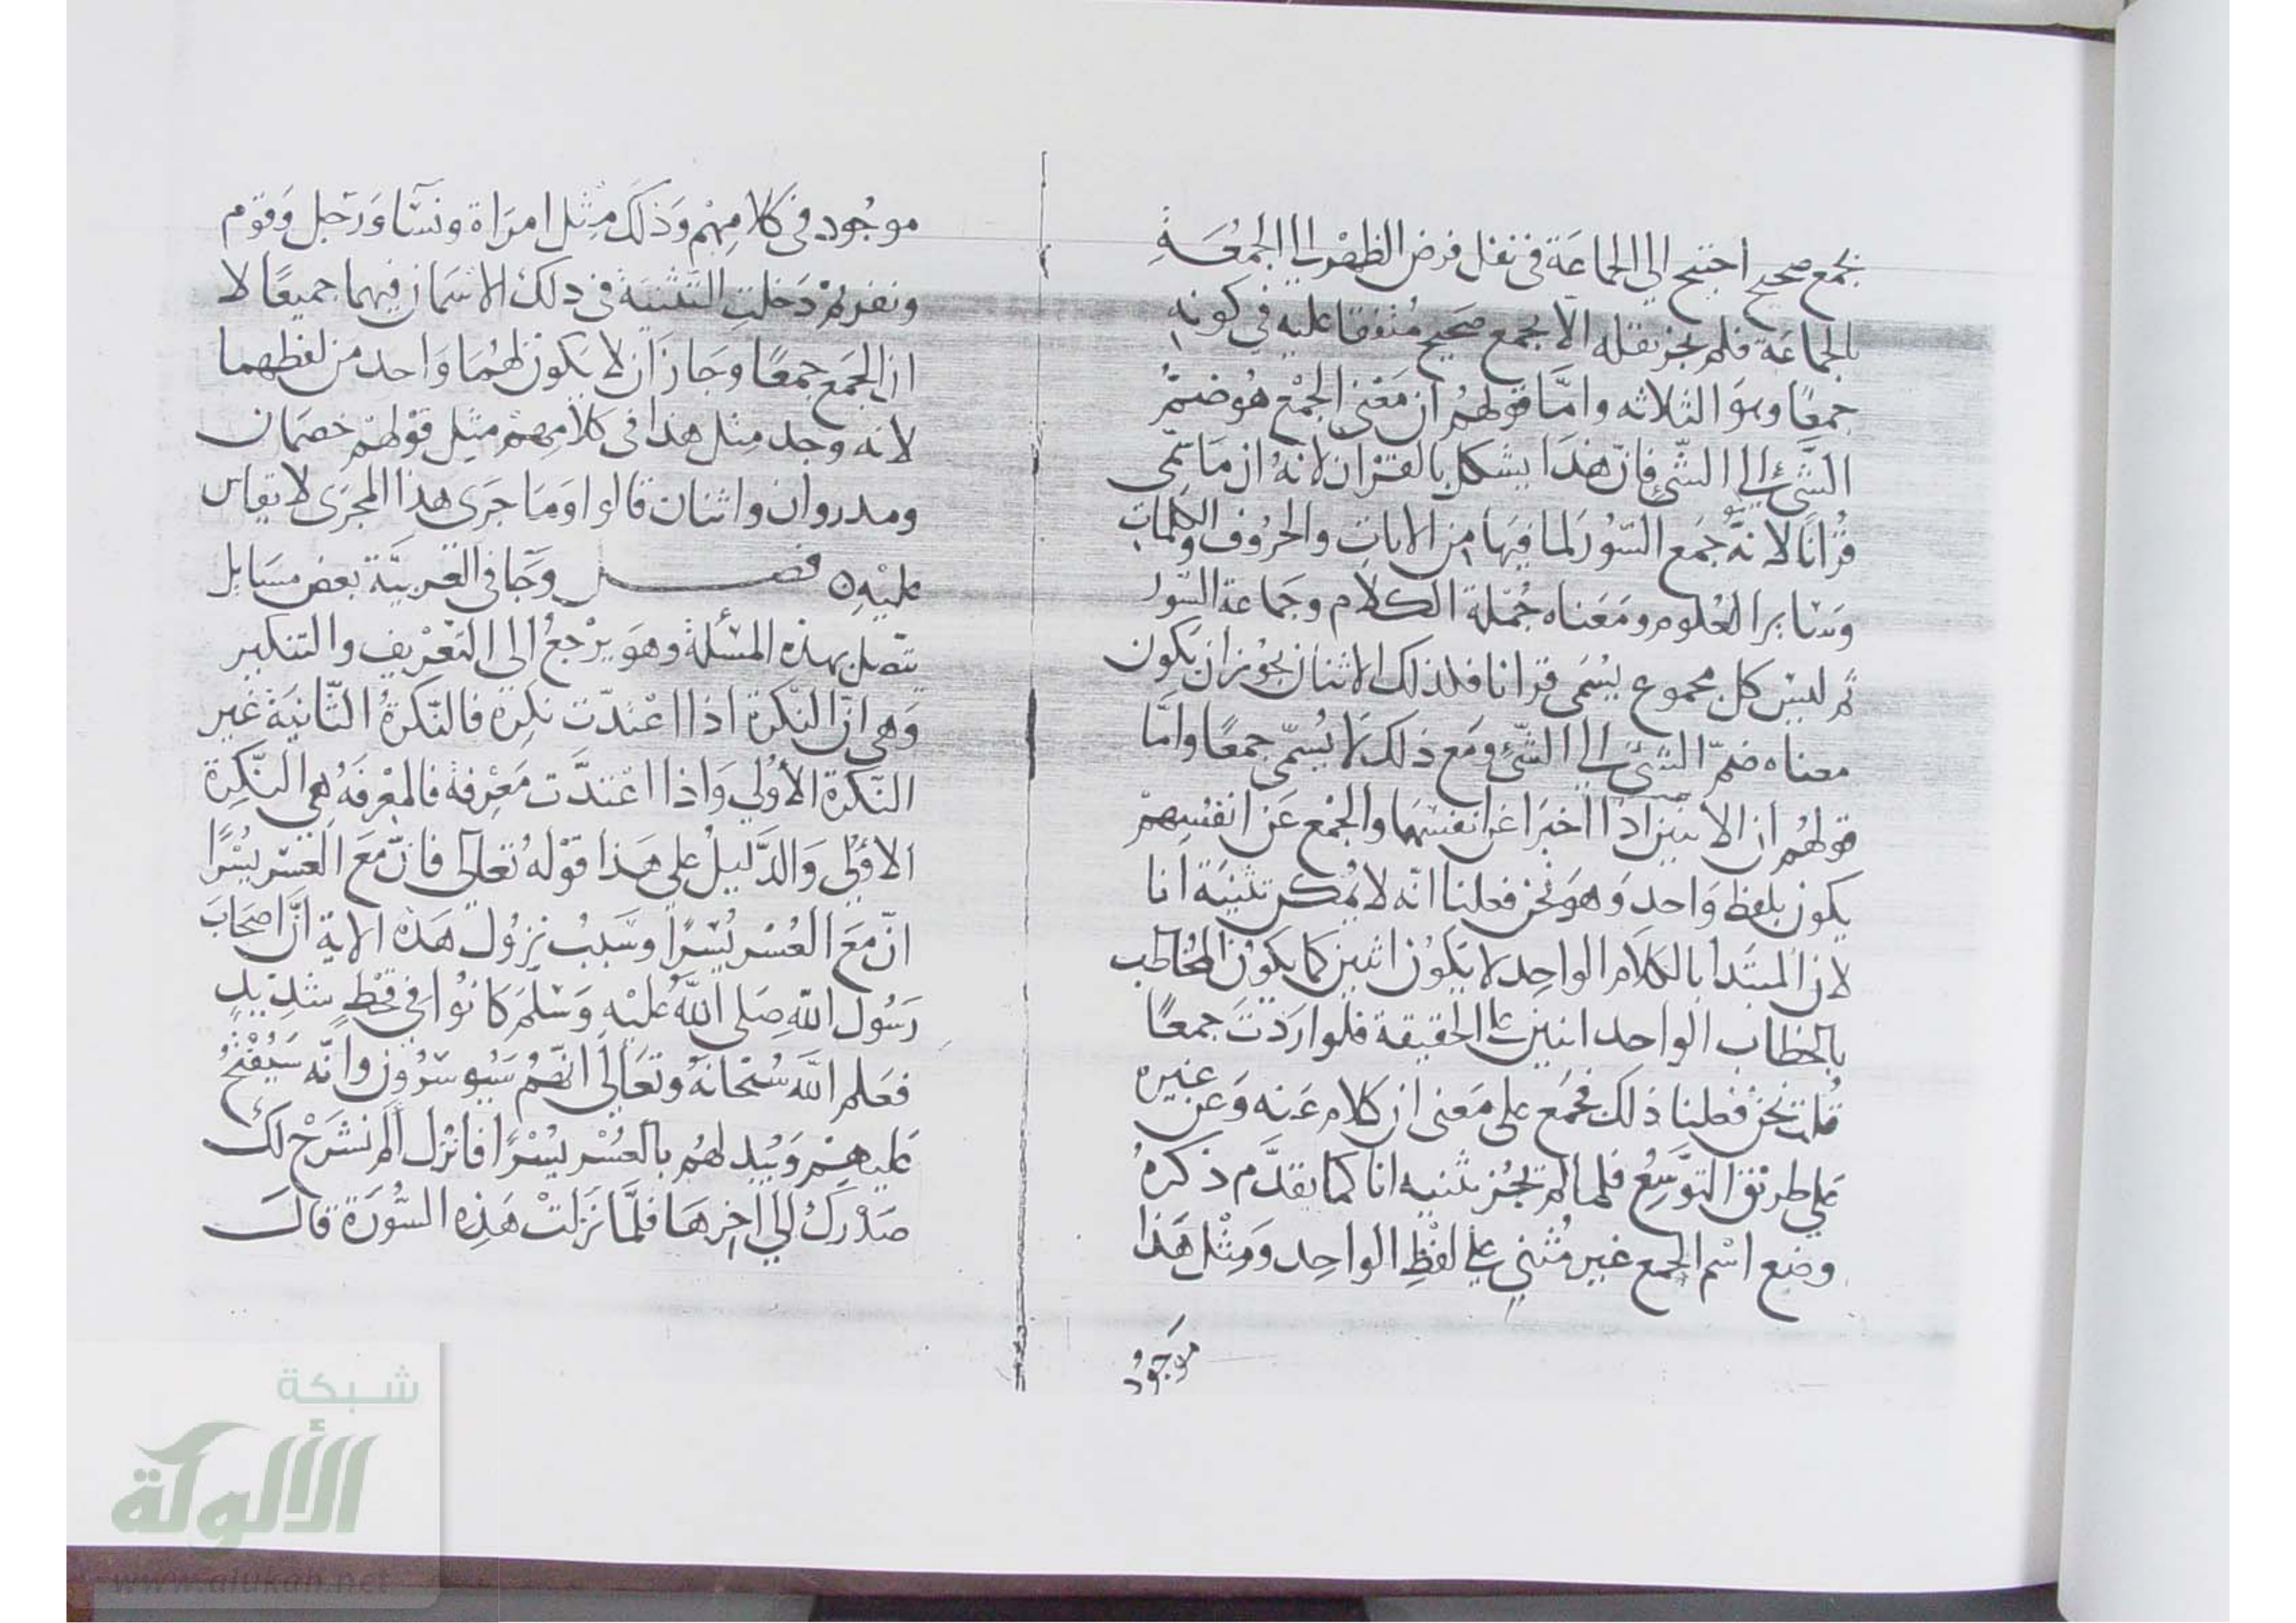 بجمع صحيح احتيج الي الجماعَة في نقل فرض الظهْر الي الجمُعَةِ
بالجماعَة فلم يجز نقله الّا بجمع صحيح مُتفقا عليه في كونهِ
جمعًا وهوَ الثلاثه وامَّا قولهُم ان مَعْني الجمْع هُو ضمّ
الشّيْ الي الشّيءِ فانّ هَذا يشكل بالقرْان لانهُ ان مَا سُمّي
قُرْانَا لانهُ جمَع السّوُر لما فيهَا من الايات والحرُوف والكلمات
وسَاير العُلوم ومَعناه جُمْلة الكلام وجَماعة السّوَر
ثم ليسَ كل مجموع يسُمَى قرانا فلذلك الاثنان يجوز ان يَكون
معناه ضمّ الشّيْ الي الشّيءِ ومَع ذلك لَا يُسمّي جمعًا وامَّا
قولهُم ان الاثنين اذا اخبَرا عَن انفسهمَا والجمْع عَن انفسِهمْ
يكون بلفظ وَاحد وَهوَ نحن فعلنا انّه لا يُمْكن تثنيَة انا
لان المبتدا بالكلام الواحِد لا يَكوُن اثنين كما يَكوُن المخاطب
بالخطاب الواحد اثنين علي الحقيقة فلو ارَدْتَ جمعًا
قلت نحن فعلنا ذلك فجمَع على مَعنى ان كلام عَنه وَعَن غيره
عَلي طريق التوَسّعُ فلما لم تجُز تثنيه انا كما تقدَّم ذكرهُ
وضع اسْم الجمع غير مُثني علي لفْظِ الواحِد وَمِثْل هَذا
مَوجُود
موجُود في كلامِهمْ وَذلَك مِثْل امرَاة ونسَآء وَرَجل وَقوْم
ونفر ثمْ دَخلتِ التّثنيَة في ذلك الاسْمان فيهما جميعًا لا
ان الجَمع جمعًا وَجَاز اَن لا يكون لهُمَا وَاحد من لفظهما
لانه وجد مِثل هذا في كلامِهمْ مثِل قوْلهمْ خصمَان
ومدروان واثنان قالوا وَمَا جَرَى هذا المجرَى لا يقاس
عليْهِ ٥ فصل وَجَآ في العَربيَّة بعض مسَايل
تتصل بهذه المسْئلة وهوَ يرْجعُ الى التعْريف والتنكير
وَهي انّ النّكرة اذا اعْتدّت نكرة فالنّكرةُ الثّانيَة غيْر
النّكرة الأوُلي وَاذا اعْتدَّت مَعْرِفة فالمعْرفَهُ هي النَّكِرة
الاوُلي وَالدَّليلُ علي هَذا قوْله تُعَالي فانّ مَعَ العُسْر يسْرًا
انّ مَعَ العُسْر يُسْرًا وسَبَبُ نزوُل هَذه الاية انَّ اصحَابَ
رَسُول اللّه صَلى اللهُ عَليْهِ وَسَلمَ كَانوُا في قحْطٍ شدِيْدٍ
فعَلم اللّه سُبْحانهُ وتعَالَي انهُمُ سَيُوسَرُون وانّه سَيُفْتَحُ
عليهمْ وَيُبدِلهُم بالعُسْر يُسْرًا فانْزل الَم نشرَحْ لكَ
صَدْرَكَ الي اخرهَا فلمَّا نزلتْ هَذِهِ السُّورَة قالَ
شبكة
الألوكة
www.alukah.net